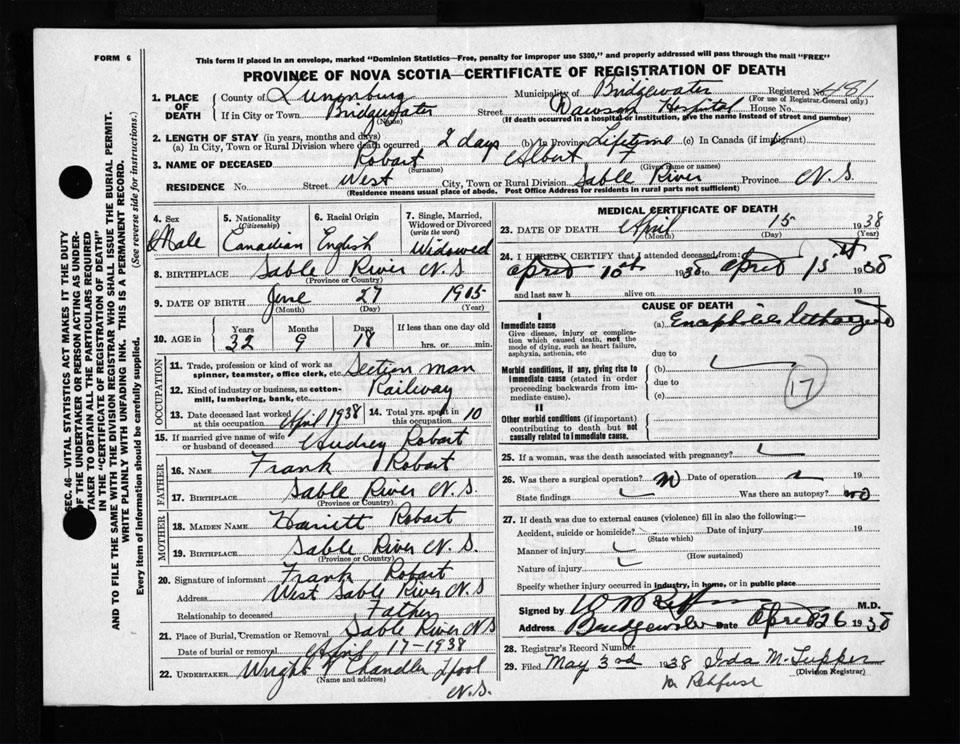 FORM 6
This form if placed in an envelope, marked "Dominion Statistics—Free, penalty for improper use $300," and properly addressed will pass through the mail "FREE"
PROVINCE OF NOVA SCOTIA—CERTIFICATE OF REGISTRATION OF DEATH
1. PLACE OF DEATH
County of Lunenburg Municipality of Bridgewater Registered No. 481
(For use of Registrar General only.)
If in City or Town Bridgewater Street Dawson Hospital House No.
(Name) (If death occurred in a hospital or institution, give the name instead of street and number)
2. LENGTH OF STAY (in years, months and days)
(a) In City, Town or Rural Division where death occurred 2 days (b) In Province Lifetime (c) In Canada (if immigrant)
3. NAME OF DECEASED Robart Albert
(Surname) (Given name or names)
RESIDENCE No. Street West City, Town or Rural Division Sable River Province N.S.
(Residence means usual place of abode. Post Office Address for residents in rural parts not sufficient)
4. Sex Male
5. Nationality (Citizenship) Canadian
6. Racial Origin English
7. Single, Married, Widowed or Divorced (write the word) Widowed
8. BIRTHPLACE Sable River N.S.
(Province or Country)
9. DATE OF BIRTH June 27 1905
(Month) (Day) (Year)
10. AGE in Years Months Days If less than one day old
32 9 18 hrs. or min.
OCCUPATION
11. Trade, profession or kind of work as spinner, teamster, office clerk, etc. Section man
12. Kind of industry or business, as cotton-mill, lumbering, bank, etc. Railway
13. Date deceased last worked at this occupation April 1938 14. Total yrs. spent in this occupation 10
15. If married give name of wife or husband of deceased Audrey Robart
FATHER
16. NAME Frank Robart
17. BIRTHPLACE Sable River N.S.
(Province or Country)
MOTHER
18. MAIDEN NAME Harriett Robart
19. BIRTHPLACE Sable River N.S.
(Province or Country)
20. Signature of informant Frank Robart
Address West Sable River N.S
Relationship to deceased Father
21. Place of Burial, Cremation or Removal Sable River N.S
Date of burial or removal April 17-1938
22. UNDERTAKER Wright & Chandler L'pool
(Name and address) N.S.
MEDICAL CERTIFICATE OF DEATH
23. DATE OF DEATH April 15 1938
(Month) (Day) (Year)
24. I HEREBY CERTIFY that I attended deceased from:
April 10th 1938 to April 15th 1938
and last saw h alive on 19
CAUSE OF DEATH
I
Immediate cause (a) Encephilitis lethargica
Give disease, injury or complication which caused death, not the mode of dying, such as heart failure, asphyxia, asthenia, etc
due to
Morbid conditions, if any, giving rise to immediate cause (stated in order proceeding backwards from immediate cause). (b)
due to
(c)
17
II
Other morbid conditions (if important) contributing to death but not causally related to immediate cause.
25. If a woman, was the death associated with pregnancy?
26. Was there a surgical operation? No Date of operation 19
State findings Was there an autopsy? no
27. If death was due to external causes (violence) fill in also the following:—
Accident, suicide or homicide? Date of injury 19
(State which)
Manner of injury
(How sustained)
Nature of injury
Specify whether injury occurred in industry, in home, or in public place
Signed by M.D.
Address Bridgewater Date April 26 1938
28. Registrar's Record Number
29. Filed May 3rd 1938 Ida M. Tupper
(Division Registrar)
SEC. 46—VITAL STATISTICS ACT MAKES IT THE DUTY OF THE UNDERTAKER OR PERSON ACTING AS UNDERTAKER TO OBTAIN ALL THE PARTICULARS REQUIRED IN THE "CERTIFICATE OF REGISTRATION OF DEATH" AND TO FILE THE SAME WITH THE DIVISION REGISTRAR WHO SHALL ISSUE THE BURIAL PERMIT.
WRITE PLAINLY WITH UNFADING INK. THIS IS A PERMANENT RECORD.
Every item of information should be carefully supplied. (See reverse side for instructions.)